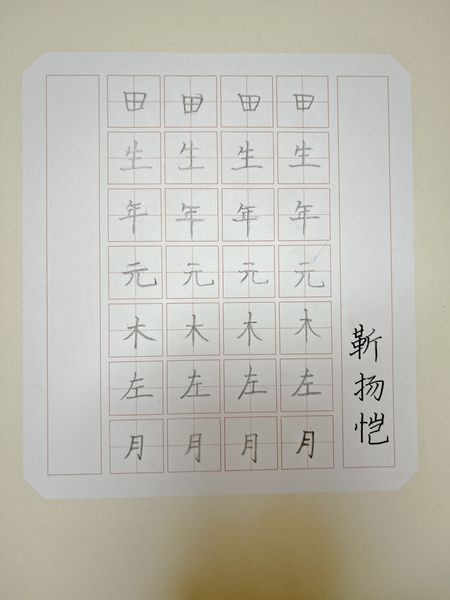 田 田 田 田
生 生 生 生
年 年 年 年
元 元 元 元
木 木 木 木
左 左 左 左
月 月 月 月
靳扬恺